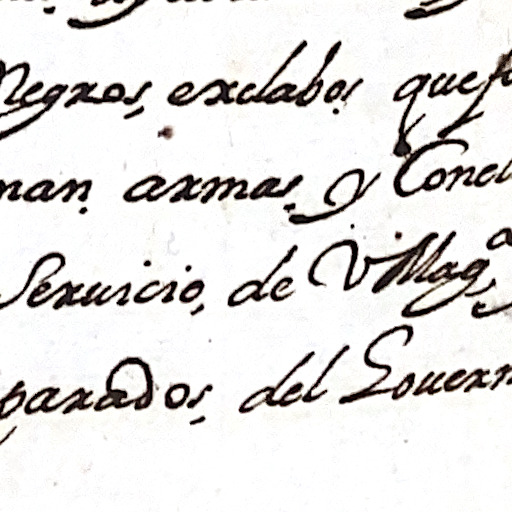 Negros, exclabos que
man armas y Concl
Seruicio, de V Mag.ᵃ
parados, del Gouern